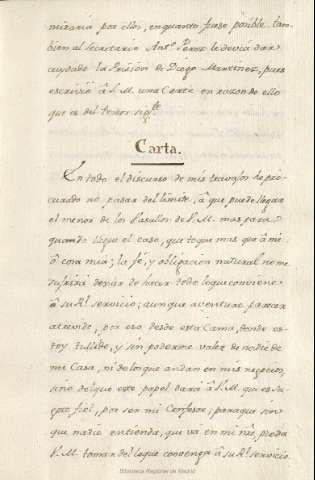 miraria por ellos, en quanto fuese posible. tam-
bien al Secretario Antº Perez le devia dar
cuydado la Prision de Diego Martinez, pues
escrivió â S.M. una Carta en razon de ello
que es del tenor sigte
Carta.
En todo el discurso de mis travajos he pro-
curado no pasar del limite, â que puede llegar
el menor de los Vasallos de V.M. mas para
quando llegue el caso, que toque mas que â mi
ô cosa mia; la fé, y obligacion natural no me
sufrirá dexar de hacer todo lo que conviene
â su Rl servicio; aunque aventure parecer
atrevido, por eso desde esta Cama, donde es-
toy tullido, y sin poderme valer de nadie de
mi Casa, ni de los que andan en mis negocios,
sino del que este papel dará â V.M. que es su-
geto fiel, por ser mi Confesor, para que sin
que nadie entienda, que va en mi nre, pueda
V.M. tomar de lo que convenga â su Rl servicio
Biblioteca Regional de Madrid